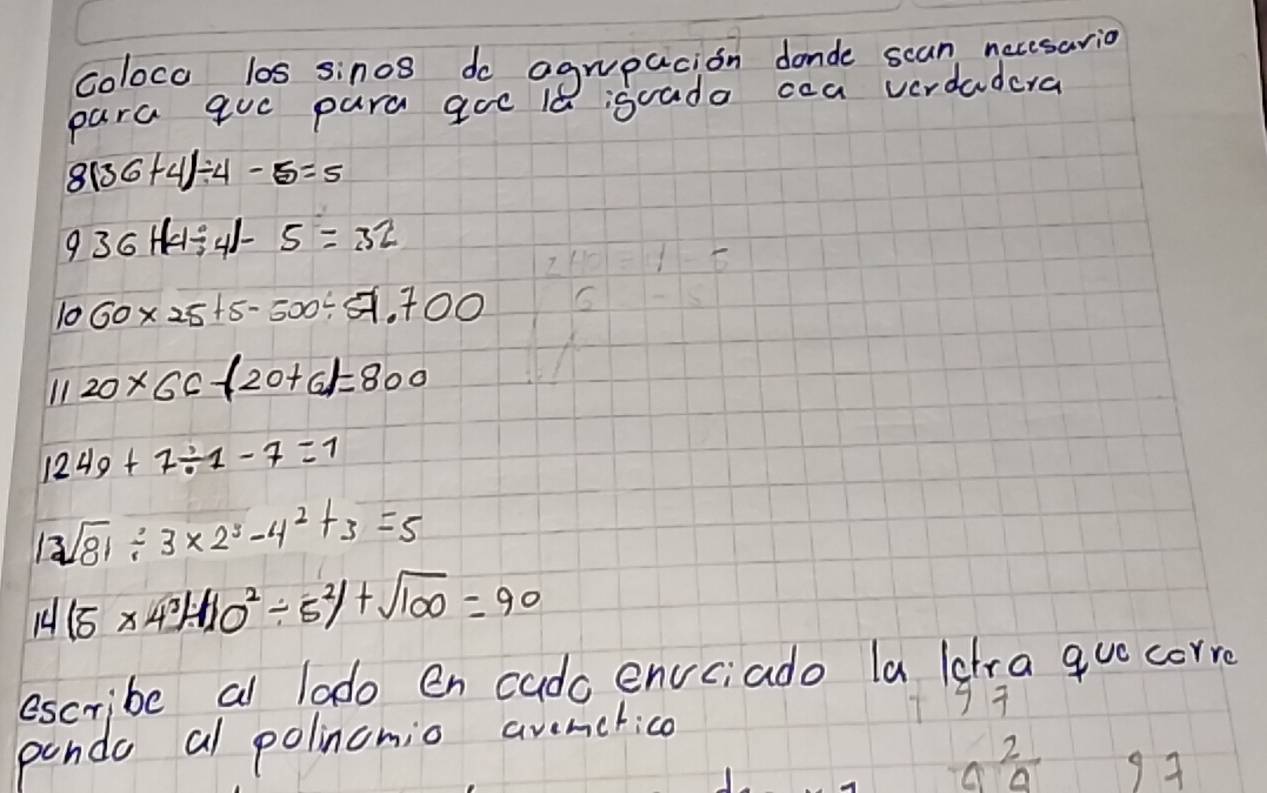 coloca los sinos de agrupación donde sean necesario
para que para que la iguada cea verdadera
8(36+4)÷4 - 5=5
9 36+(4÷4)- 5 = 32
10 60×25+5-500÷51.700
11 20×66-(20+6)=800
12 49+7÷1-7=1
13 √81 ÷3×2³-4²+3=5
14 (5×4³)÷(10²÷5²)+√100=90
escribe al lado en cada enuciado la letra que corre
9 7
ponda al polinomio aremetico
2
9 7